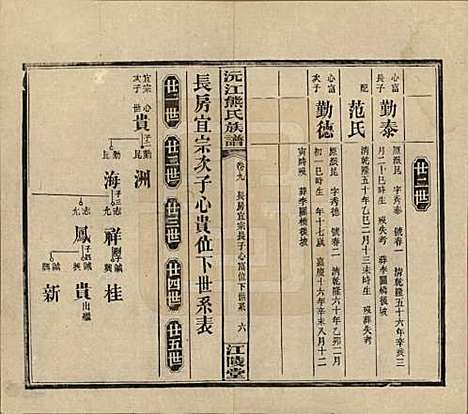 廿二世
心富長子
勤泰
原派昆 字秀泰 號春一 清乾隆五十六年辛亥三
月二十巳時生 歿失考 葬李圖橫後坡
配
范氏
清乾隆五十年乙巳二月十三未時生 歿葬失考
心富次子
勤德
原派昆 字秀德 號春二 清乾隆六十年乙卯二月
初一巳時生 年十七歲 嘉慶十六年辛未八月十二
寅時歿 葬李圖橫後坡
沅江熊氏族譜
卷九 長房宜宗長子心富位下世系 六
江陵堂
長房宜宗次子心貴位下世系表
廿一世
廿二世
廿三世
廿四世
廿五世
宜宗次子
心貴
子二
勤洲
昆海
子三
志祥
九鳳
子
誠桂
興
誠貴
出繼
誠新
興